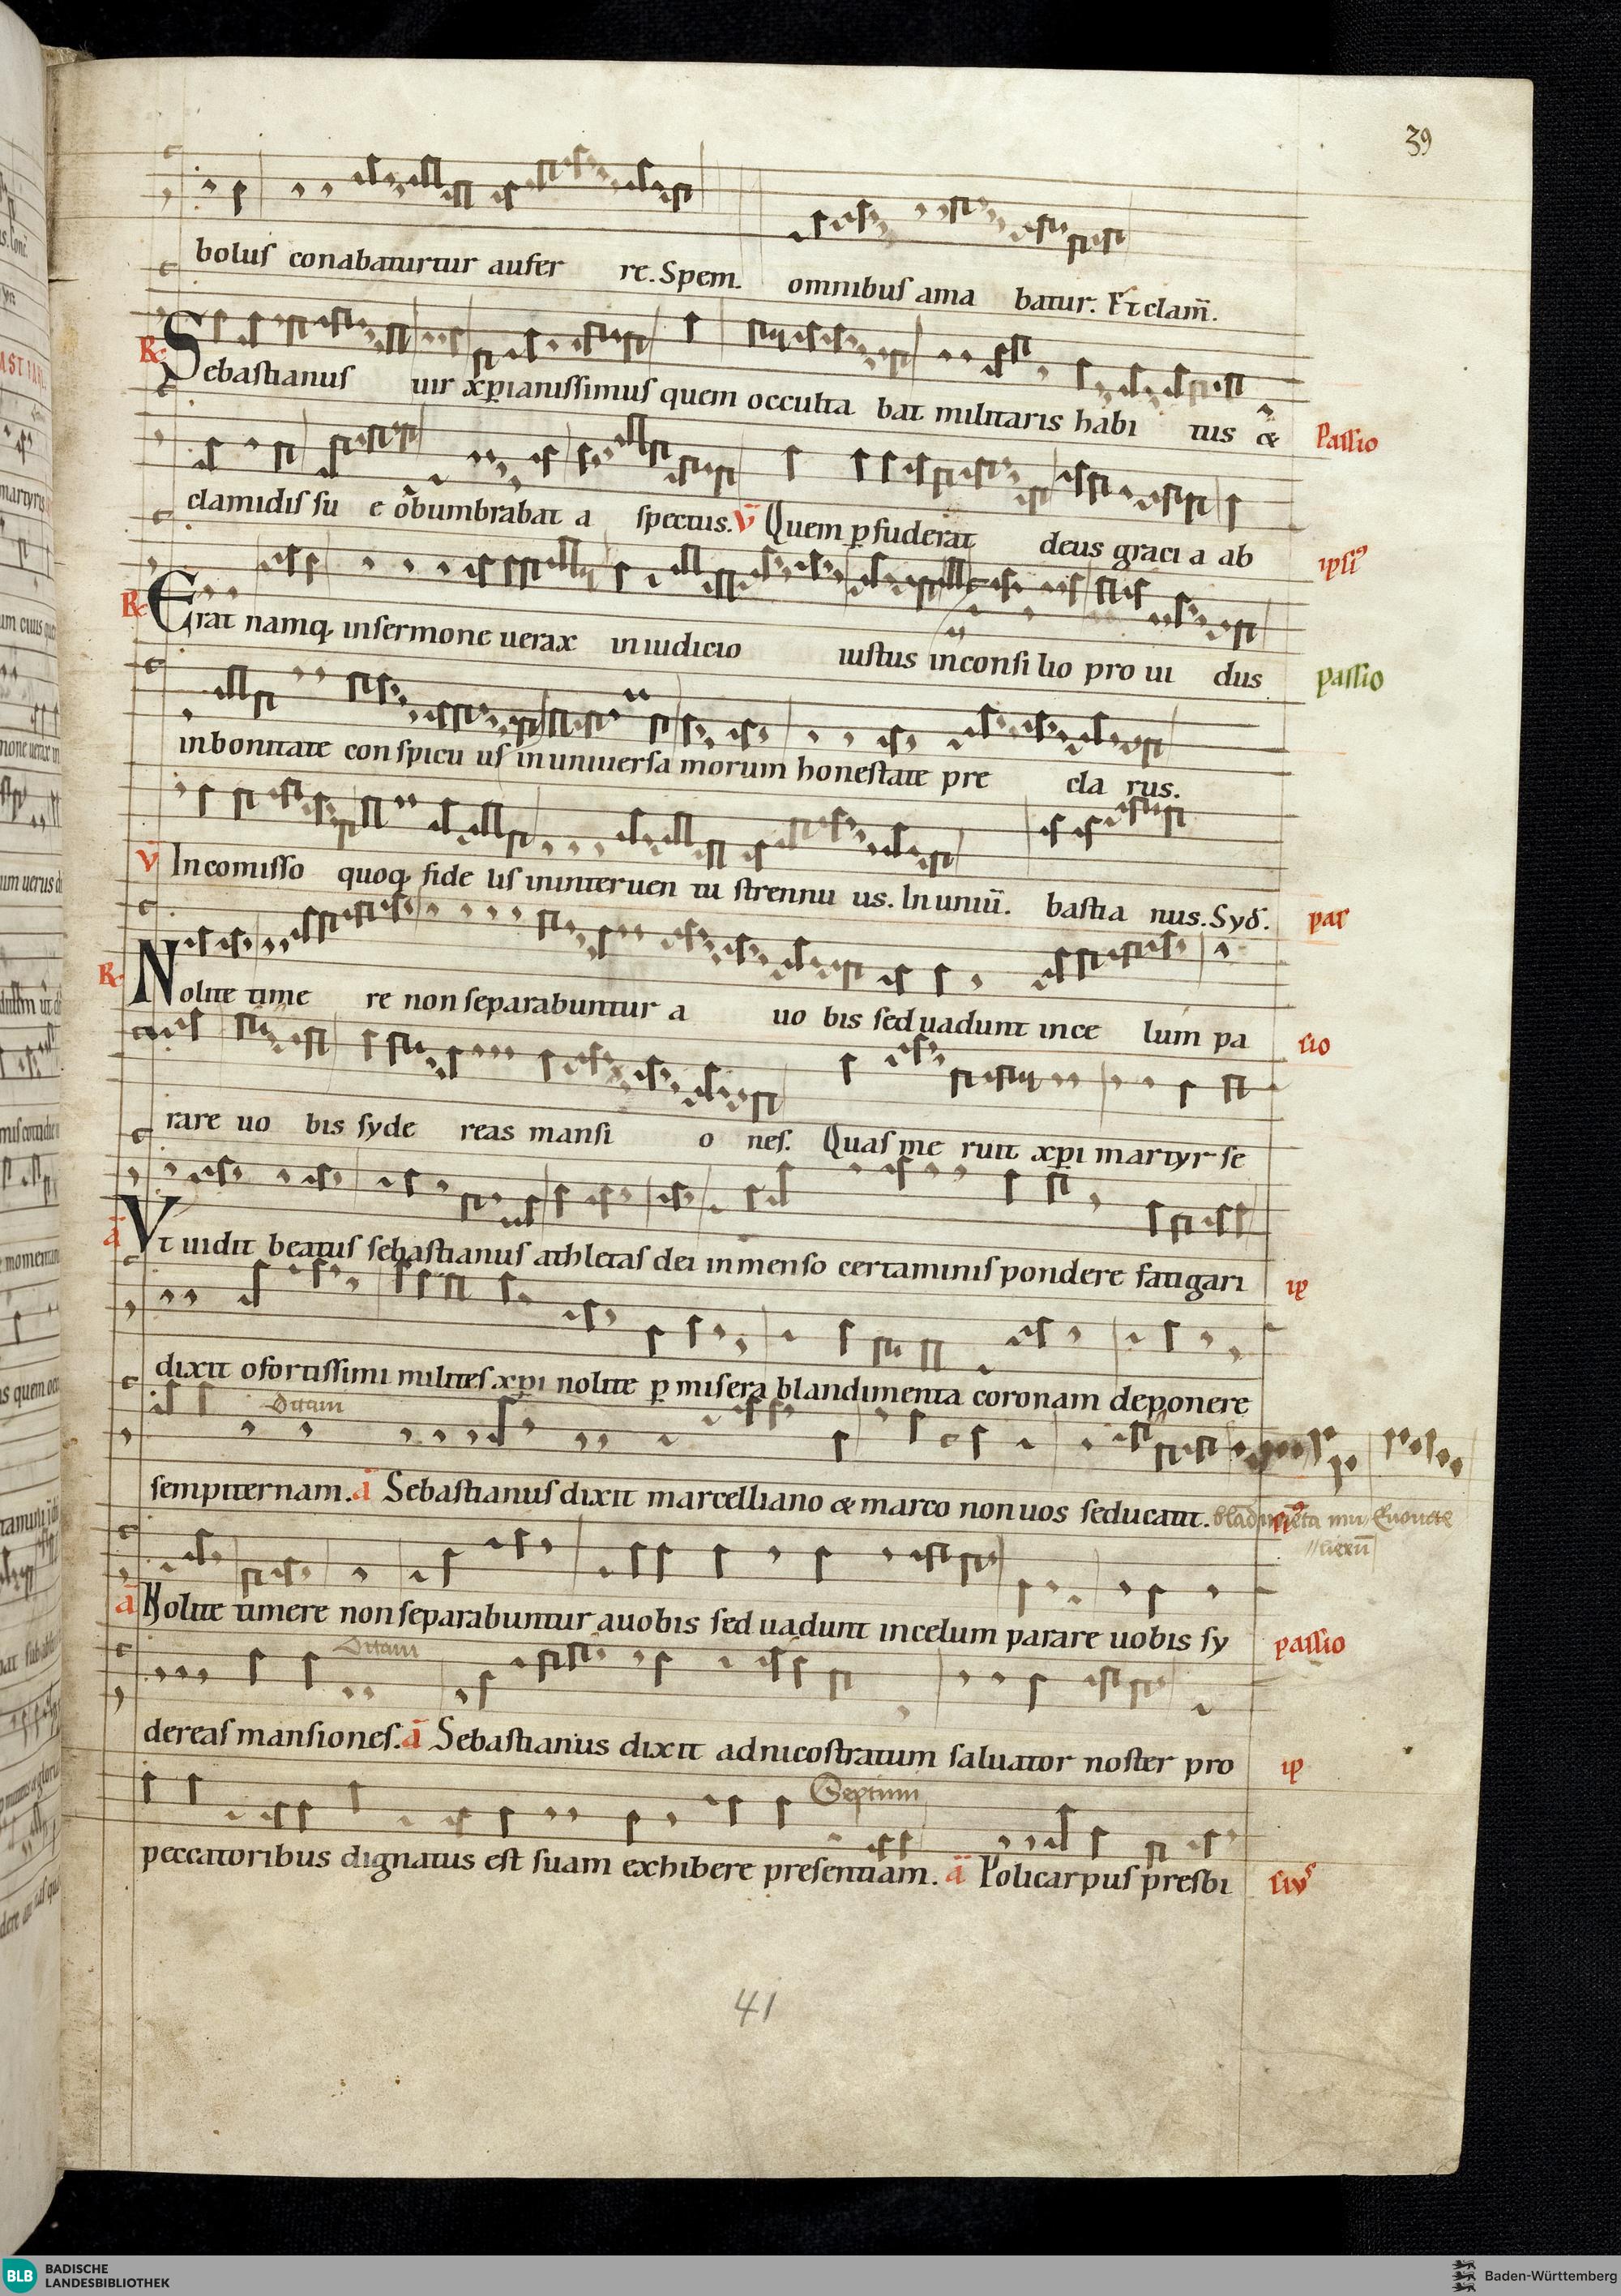 39
boluſ conabaturtur aufer re. Spem. omnibuſ ama batur. Et clam̄.
R. Sebaſtianuſ uir xp̄ianiſſimuſ quem occulta bat militaris habi tus & Paſſio
clamidiſ ſu e obumbrabat a ſpectus. v̄ Quem ꝑfuderat deus graci a ab ipſiꝰ
R. Erat namq, inſermone uerax in iudicio iuſtus inconſi lio pro ui dus paſſio
inbonitate conſpicu uſ inuniuerſa morum honeſtate pre cla rus.
v̄ Incomiſſo quoq, fide liſ ininteruen tu ſtrennu us. In uniū. baſtia nus. Syd̄. par
R. Nolite time re non ſeparabuntur a uo bis ſed uadunt ince lum pa ſio
rare uo bis ſyde reas manſi o neſ. Quaſ me ruit xp̄i martyr ſe
ā Vt uidit beatus ſebaſtianus athletaſ dei inmenſo certaminiſ pondere fatigari ip
dixit ofortiſſimi militeſ xp̄i nolite ꝑ miſera blandimenta coronam deponere
Ditam
ſempiternam. ā Sebaſtianuſ dixit marcelliano & marco non uos ſeducant.
ā Nolite timere non ſeparabuntur auobis ſed uadunt incelum parare uobis ſy paſſio
Ditam
dereaſ manſioneſ. ā Sebaſtianus dixit adnicoſtratum ſaluator noſter pro ip
Septimi
peccatoribus dignatus eſt ſuam exhibere preſentiam. ā Policarpuſ preſbi
41
BLB BADISCHE
LANDESBIBLIOTHEK
Baden-Württemberg